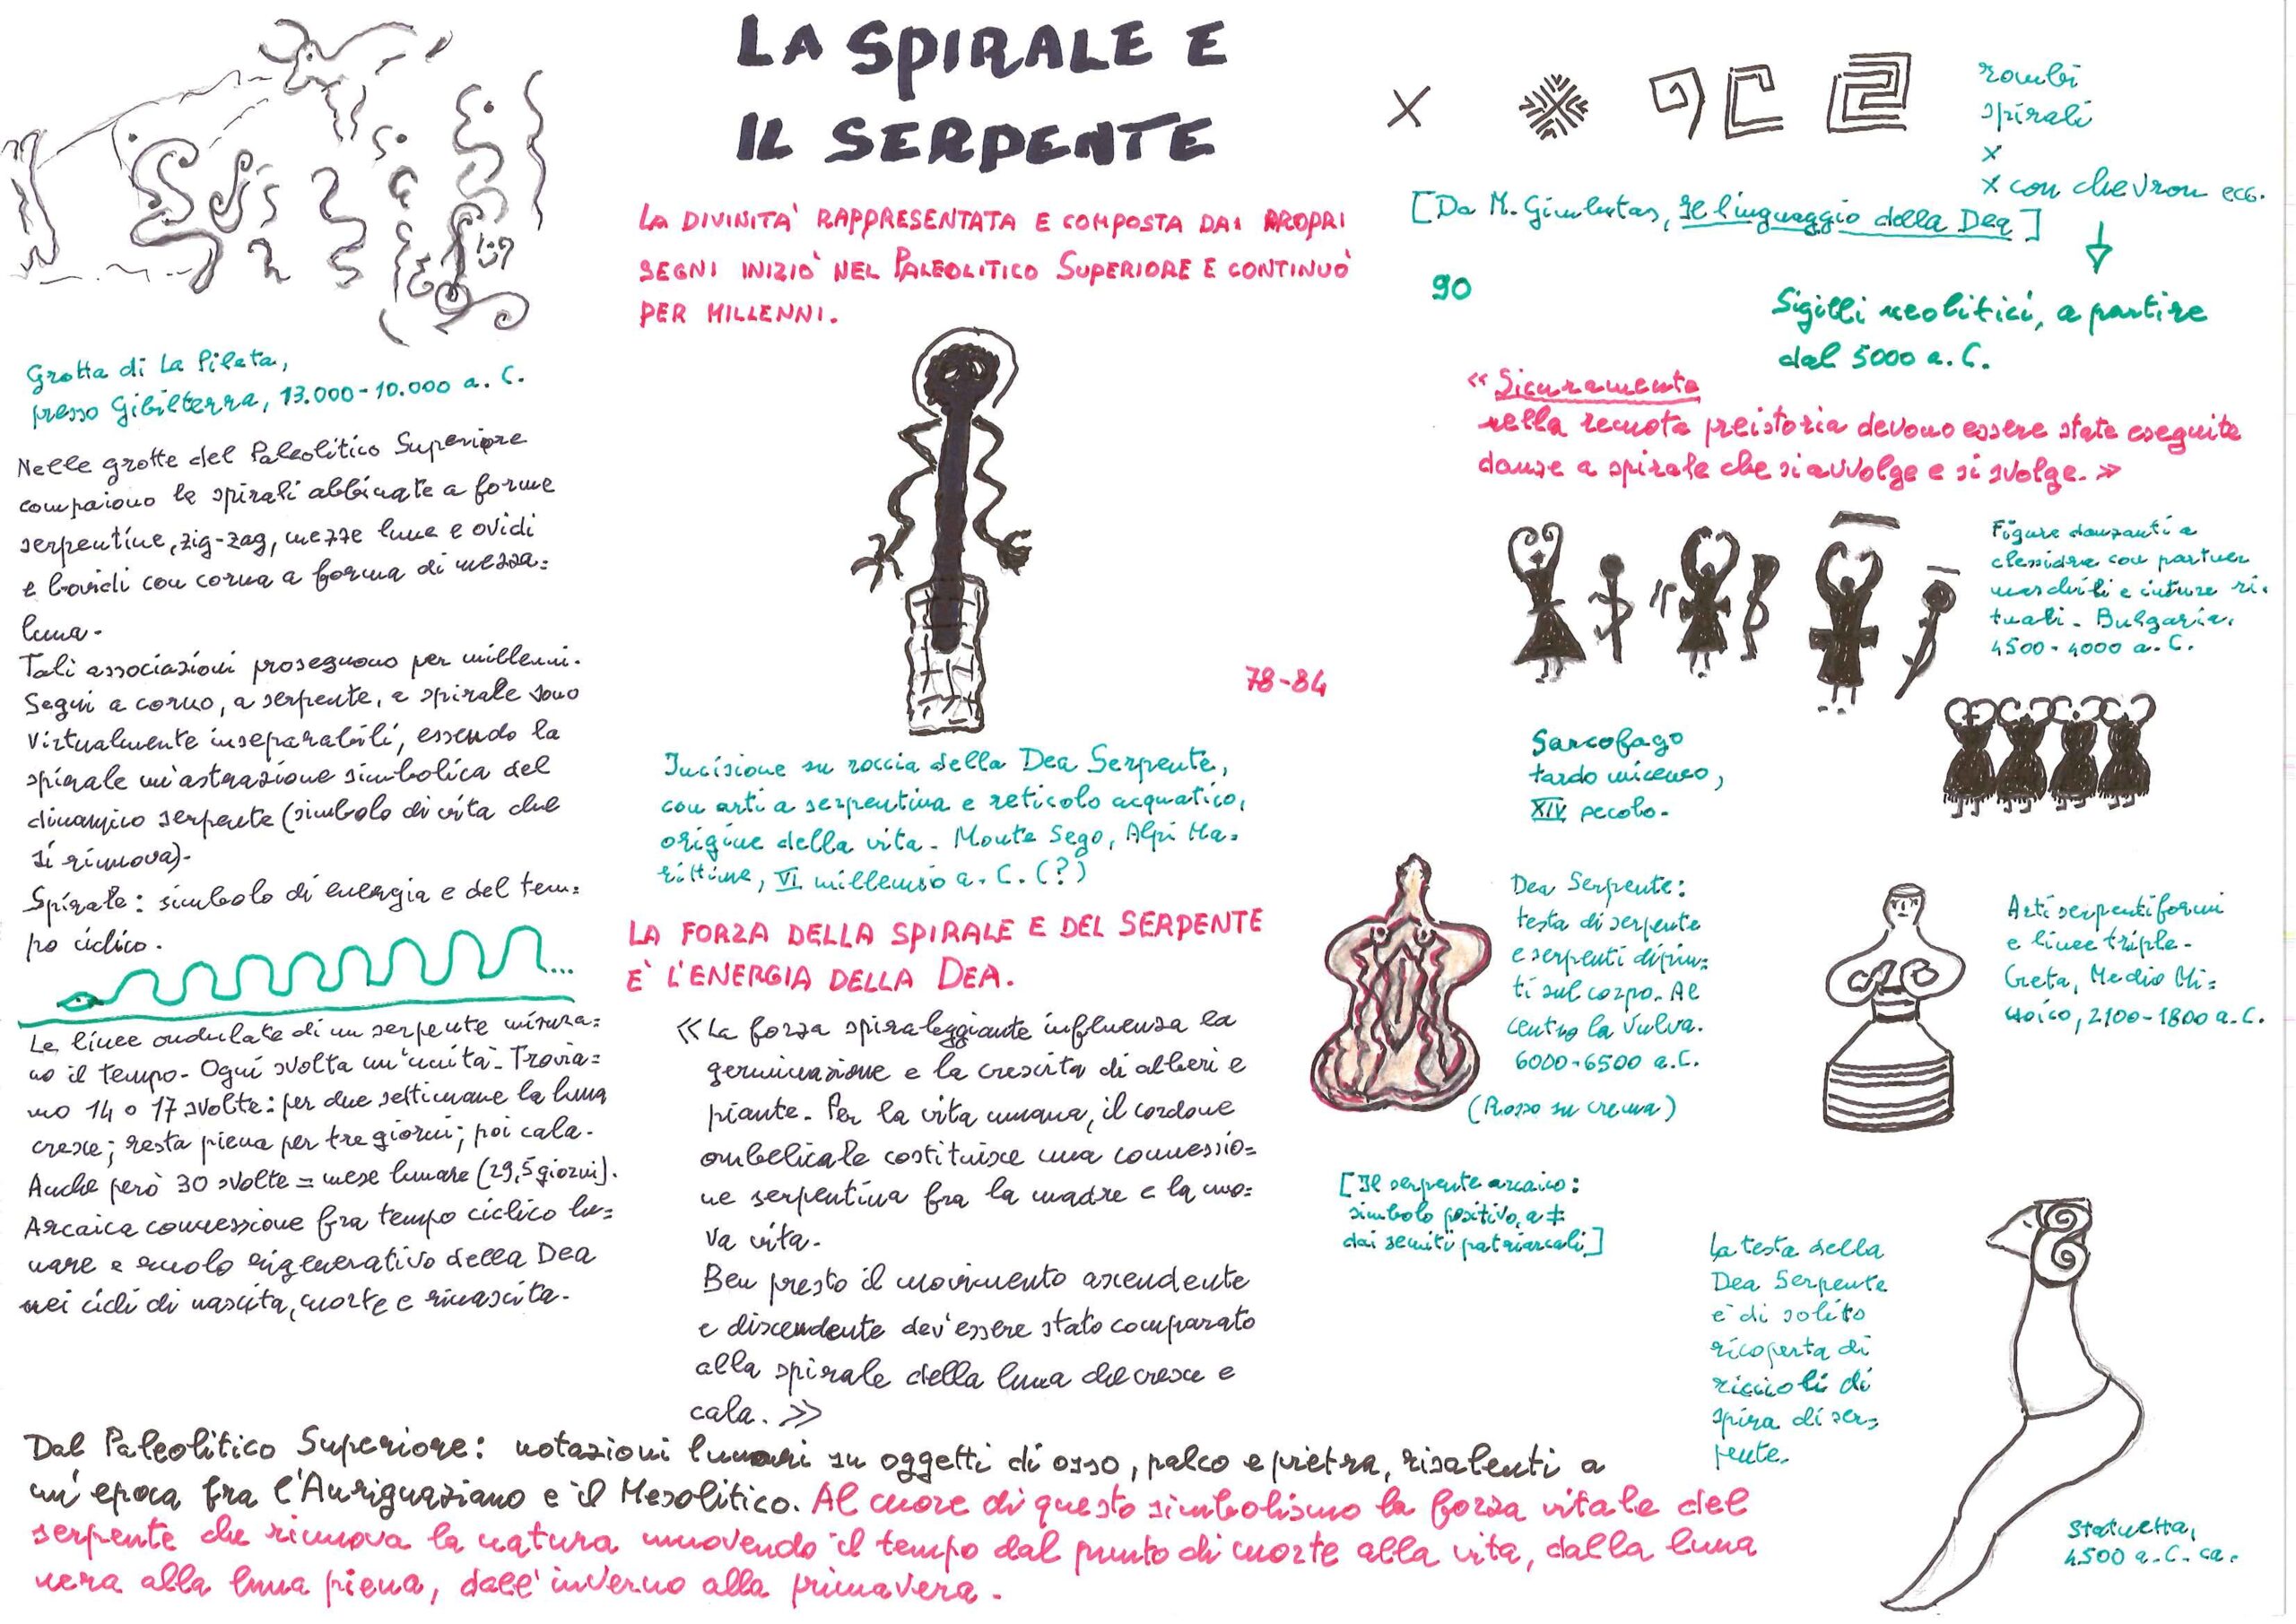 LA SPIRALE E
IL SERPENTE
LA DIVINITA' RAPPRESENTATA E COMPOSTA DAI PROPRI
SEGNI INIZIO' NEL PALEOLITICO SUPERIORE E CONTINUO'
PER MILLENNI.
Grotta di La Pileta,
presso Gibilterra, 13.000-10.000 a.C.
Nelle grotte del Paleolitico Superiore
compaiono le spirali abbinate a forme
serpentine, zig-zag, mezze lune e ovidi
e bovidi con corna a forma di mezza=
luna.
Tali associazioni proseguono per millenni.
Segni a corno, a serpente, a spirale sono
virtualmente inseparabili, essendo la
spirale un'astrazione simbolica del
dinamico serpente (simbolo di vita che
si rinnova).
Spirale: simbolo di energia e del tem=
po ciclico.
Le linee ondulate di un serpente misura=
no il tempo. Ogni svolta un'unità. Trovia=
mo 14 o 17 svolte: per due settimane la luna
cresce; resta piena per tre giorni; poi cala.
Anche però 30 svolte = mese lunare (29,5 giorni).
Arcaica connessione fra tempo ciclico lu=
nare e ruolo rigenerativo della Dea
nei cicli di nascita, morte e rinascita.
78-84
Incisione su roccia della Dea Serpente,
con arti a serpentina e reticolo acquatico,
origine della vita. Monte Sego, Alpi Ma=
rittime, VI millennio a.C. (?)
LA FORZA DELLA SPIRALE E DEL SERPENTE
E' L'ENERGIA DELLA DEA.
«La forza spiraleggiante influenza la
germinazione e la crescita di alberi e
piante. Per la vita umana, il cordone
ombelicale costituisce una connessio=
ne serpentina fra la madre e la nuo=
va vita.
Ben presto il movimento ascendente
e discendente dev'essere stato comparato
alla spirale della luna che cresce e
cala.»
rombi
spirali
x
x con chevron ecc.
[Da M. Gimbutas, Il linguaggio della Dea]
90
Sigilli neolitici, a partire
dal 5000 a.C.
«Sicuramente
nella remota preistoria devono essere state eseguite
danze a spirale che si avvolge e si svolge.»
Figure danzanti a
clessidra con partner
maschili e cinture ri=
tuali. Bulgaria.
4500-4000 a.C.
Sarcofago
tardo miceneo,
XIV secolo.
Dea Serpente:
testa di serpente
e serpenti dipin=
ti sul corpo. Al
centro la vulva.
6000-6500 a.C.
(Rosso su crema)
Arti serpentiformi
e linee triple.
Creta, Medio Mi=
noico, 2100-1800 a.C.
[Il serpente arcaico:
simbolo positivo, a ≠
dai semiti patriarcali]
La testa della
Dea Serpente
è di solito
ricoperta di
riccioli di
spira di ser=
pente.
Statuetta,
4500 a.C. ca.
Dal Paleolitico Superiore: notazioni lunari su oggetti di osso, palco e pietra, risalenti a
un'epoca fra l'Aurignaziano e il Mesolitico. Al cuore di questo simbolismo la forza vitale del
serpente che rinnova la natura muovendo il tempo dal punto di morte alla vita, dalla luna
nera alla luna piena, dall'inverno alla primavera.